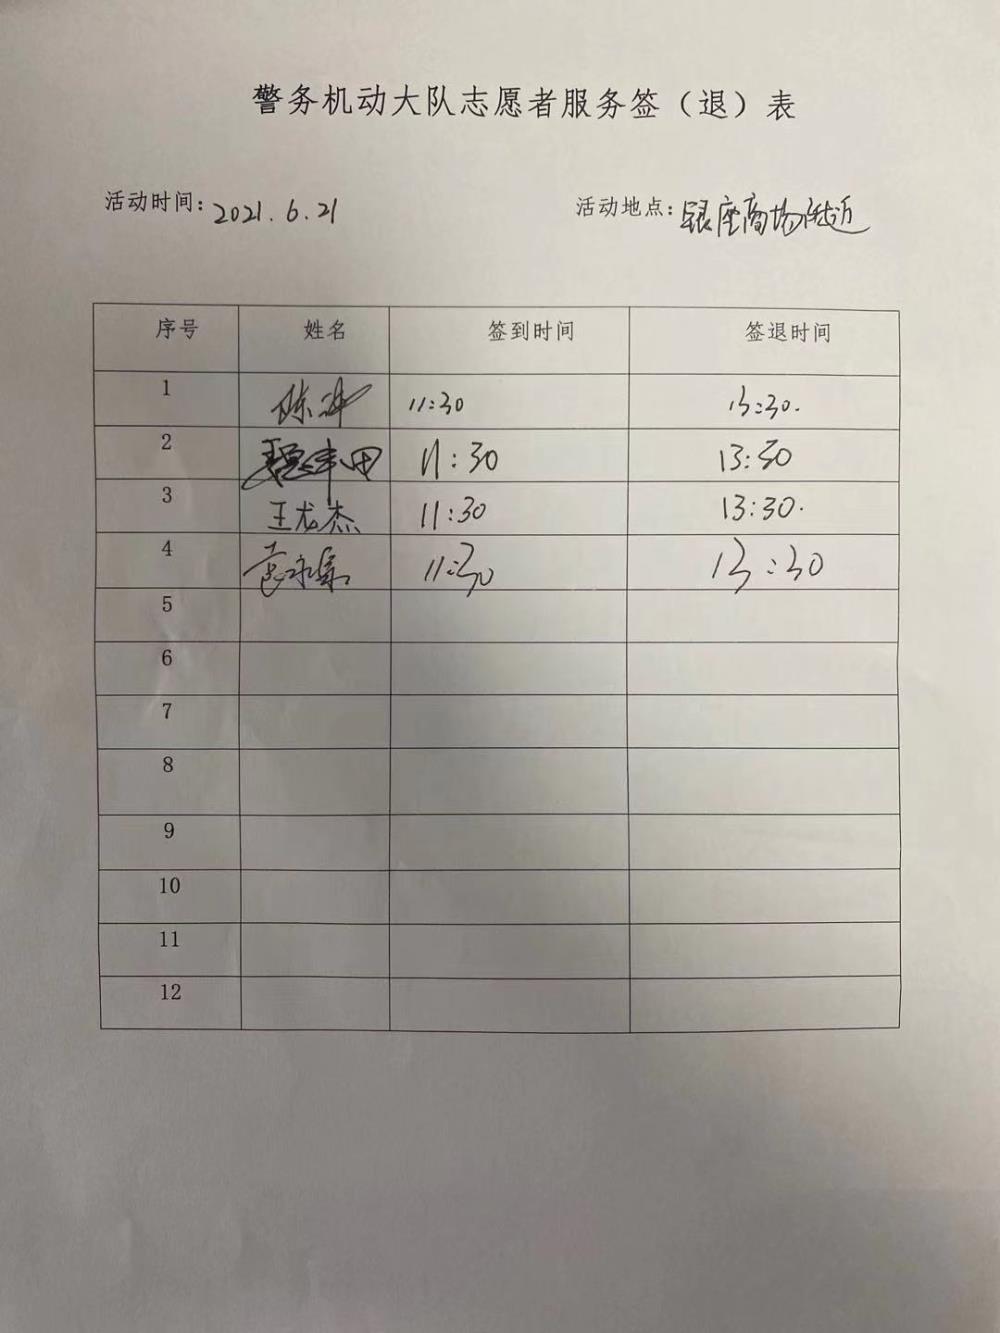 警务机动大队志愿者服务签（退）表
活动时间：2021.6.21 活动地点：银座商场附近
序号 姓名 签到时间 签退时间
1 陈 11:30 13:30.
2 11:30 13:30
3 王龙杰 11:30 13:30.
4 袁永 11:30 13:30
5
6
7
8
9
10
11
12